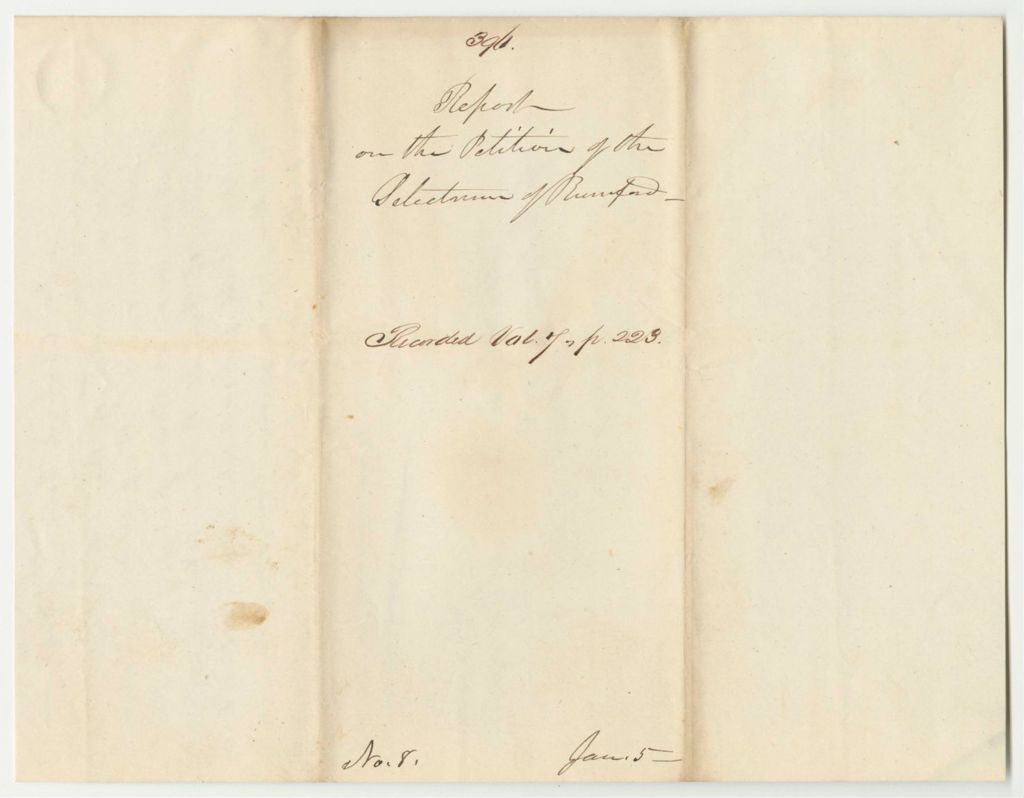 396.
Report
on the Petition of the
Selectmen of Rumford—
Recorded Vol. 7, p. 223.
No. 8. Jan. 5—